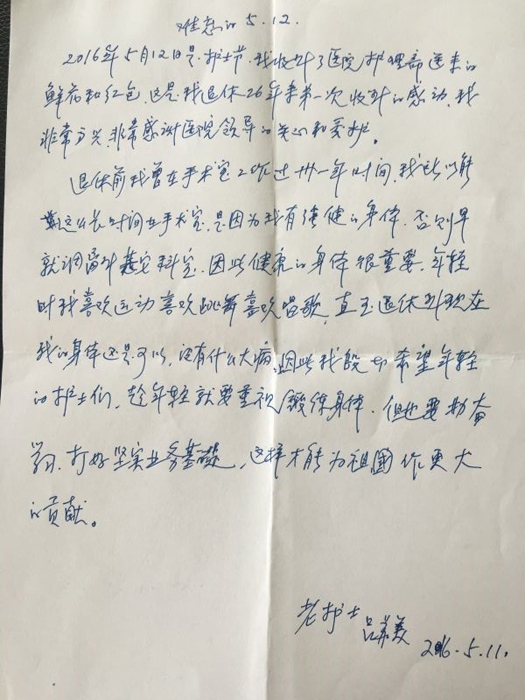 难忘的5.12.
2016年5月12日是护士节,我收到了医院护理部送来的
鲜花和红包,这是我退休26年来第一次收到的感动,我
非常高兴,非常感谢医院领导的关心和爱护。
退休前我曾在手术室工作过卅一年时间,我所以能
这么长时间在手术室,是因为我有强健的身体,否则早
就调离到其它科室,因此健康的身体很重要,年轻
时我喜欢运动喜欢跳舞喜欢唱歌,直至退休到现在
我的身体还是可以,没有什么大病,因此我殷切希望年轻
的护士们,趁年轻就要重视锻练身体,但也要勤奋
学习,打好坚实业务基礎,这样才能为祖國作更大
的贡献。
老护士 吕美 2016.5.11.